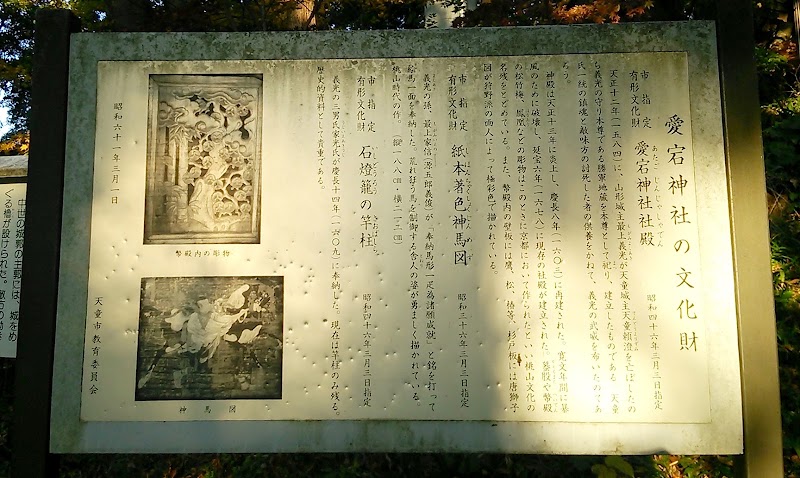 愛宕神社の文化財
市指定
有形文化財
愛宕神社社殿
あたごじんじゃしゃでん
昭和四十六年三月三日指定
天正十二年(一五八四)に、山形城主最上義光が天童城主天童頼澄を亡ぼしたの
ち義光の守り本尊である勝軍地蔵を本尊として祀り、建立したものである。天童
氏一統の鎮魂と敵味方の討死した者の供養をかねて、義光の武威を布いたのであ
ろう。
神殿は天正十三年に炎上し、慶長八年(一六〇三)に再建された。寛文年間に暴
風のために破壊し、延宝六年(一六七八)に現存の社殿が建立された。
の松竹梅、鳳凰などの彫物はこのときに京都において作られたといい桃山文化の
名残をとどめている。また、幣殿内の壁板には鷹、松、椿等、杉戸板には唐獅子
図が狩野派の画人によって極彩色で描かれている。
市指定
有形文化財
紙本著色神馬図
昭和三十六年三月三日指定
義光の孫、最上家信(源五郎義俊)が、奉納馬形一疋為諸願成就」と銘を打って
絵馬一面を奉納した。荒れ狂う馬を制御する舎人の姿が勇ましく描かれている。
桃山時代の作。
市指定
有形文化財
石燈籠の竿柱
昭和四十六年三月三日指定
義光の三男氏家光氏が慶長十四年(一六〇九)に奉納した。現在は竿柱のみ残る。
歴史的資料として貴重である。
幣殿内の彫物
神馬図
昭和六十一年三月一日
天童市教育委員会
中世の城郭の主郭には、城をめ
ぐる橋が設けられた。